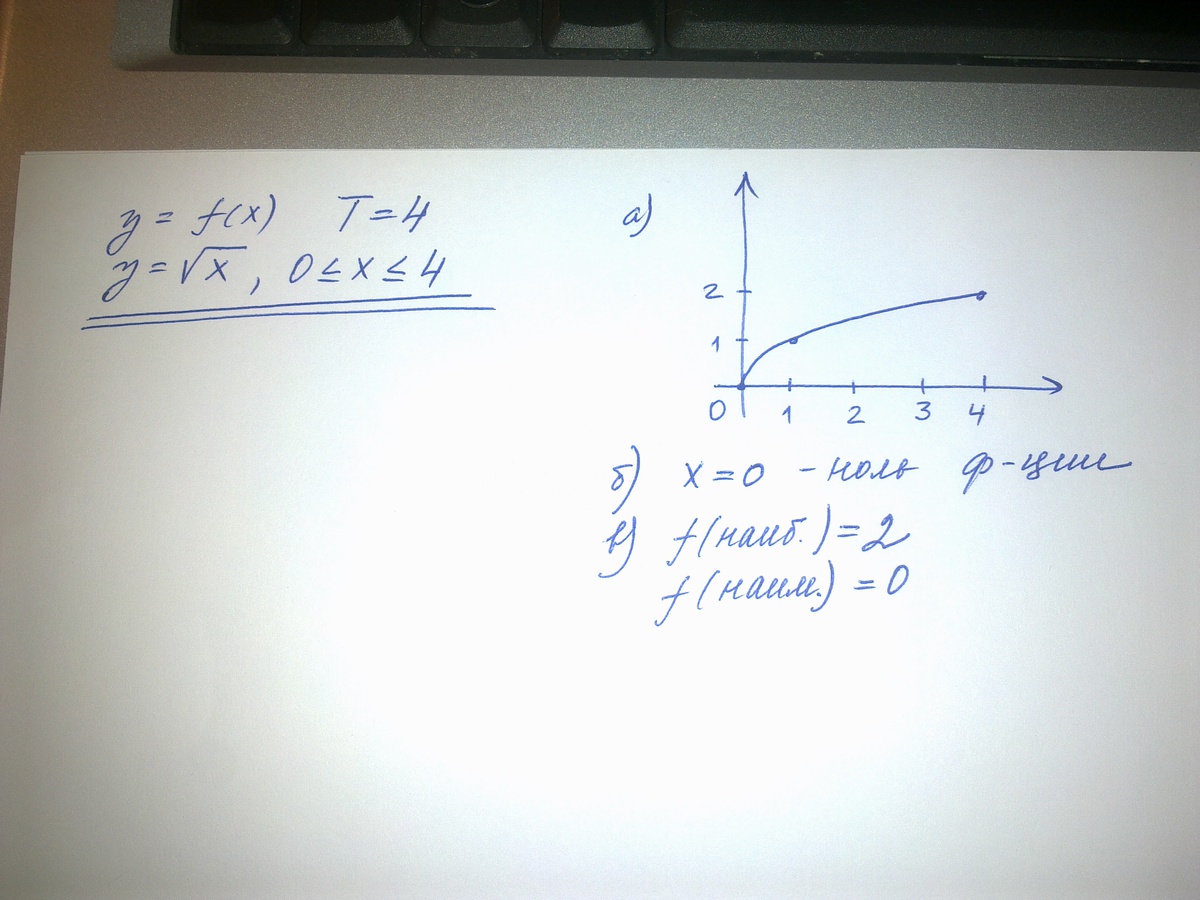 y = f(x) T = 4
y = √x , 0 ≤ x ≤ 4
а)
2
1
0 1 2 3 4
б) x = 0 - ноль ф-ции
в) f(наиб.) = 2
f(наим.) = 0